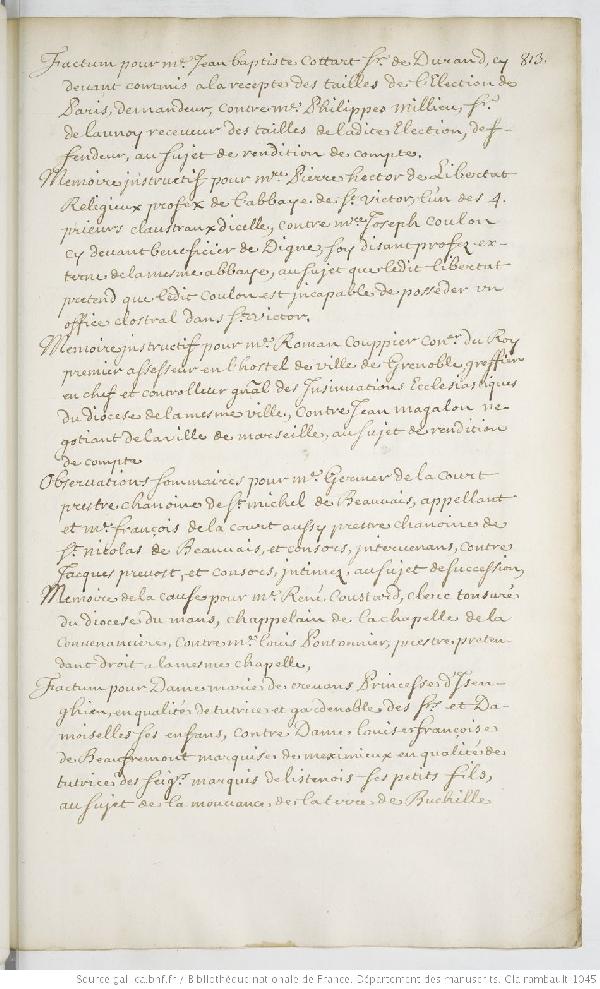 Factum pour mᵉ. Jean baptiste Cottart Sʳ. de Durand, cy 813.
devant commis a la recepte des tailles de l'Election de
Paris, demandeur, contre mᵉ. Philippes Millieu, Sʳ.
de launoy receveur des tailles de ladite Election, def-
fendeur, au sujet de rendition de compte.
Memoire instructif pour mʳᵉ Pierre hector de Libertat
Religieux profex de l'abbaye de Sᵗ victor, l'un des 4.
prieurs claustraux d'icelle, contre mʳᵉ Joseph Coulon
cy devant beneficier de Digne, soy disant profez ex-
terne de la mesme abbaye, au sujet que ledit libertat
pretend que ledit Coulon est incapable de posseder un
office clostral dans Sᵗ. Victor.
Memoire instructif pour mᵉ. Roman Couppier Conᵉʳ. du Roy
premier assesseur en l'hostel de ville de Grenoble, greffier
en chef et controlleur gñal des Insinuations Ecclesiastiques
du diocese de la mesme ville, Contre Jean magalon ne-
gotiant de la ville de marseille, au sujet de rendition
de compte
Observations sommaires pour mᵉ. Germer de la Court
prestre chanoine de Sᵗ michel de Beauvais, appellant
et mᵉ. françois de la court aussy prestre chanoine de
Sᵗ. nicolas de Beauvais, et consors, intervenans, contre
Jacques prevost, et consors, intimez, au sujet de succession,
Memoire de la cause pour mᵉ. René Coustard, clerc tonsuré
du diocese du mans, chappelain de la chapelle de la
Convenanciere, Contre mᵉ. louis Pontonnier, prestre preten-
dant droit a la mesme chapelle,
Factum pour Dame marie de crevans Princesse d'Isen-
ghien, en qualité de tutrice et gardenoble des Sʳˢ. et Da-
moiselles ses enfans, contre Dame louise françoise
de Beaufremont marquise de meximieux en qualité de
tutrice des Seigʳˢ. marquis de listenois ses petits fils,
au sujet de la mouvance de la terre de Buchille